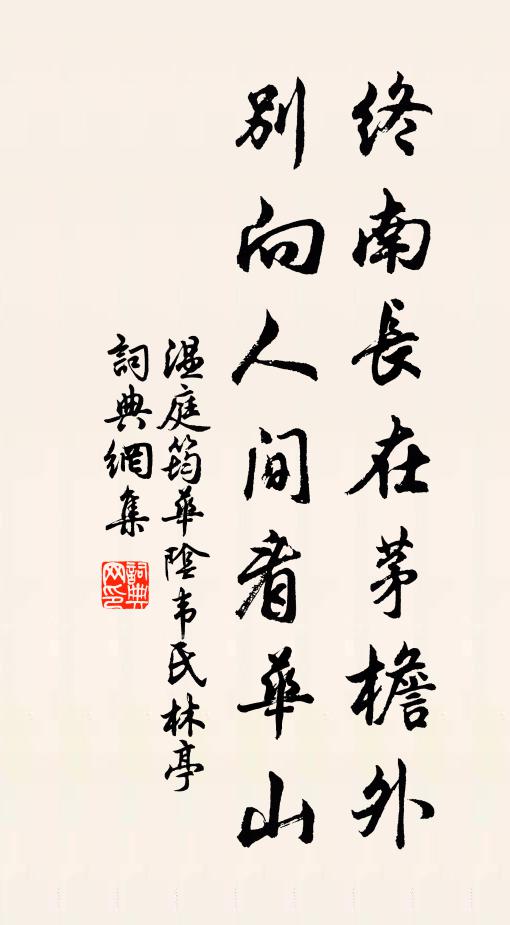 終南長在茅檐外
別向人間看華山
溫庭筠華陰韦氏林亭
詞典網集
詞典网印